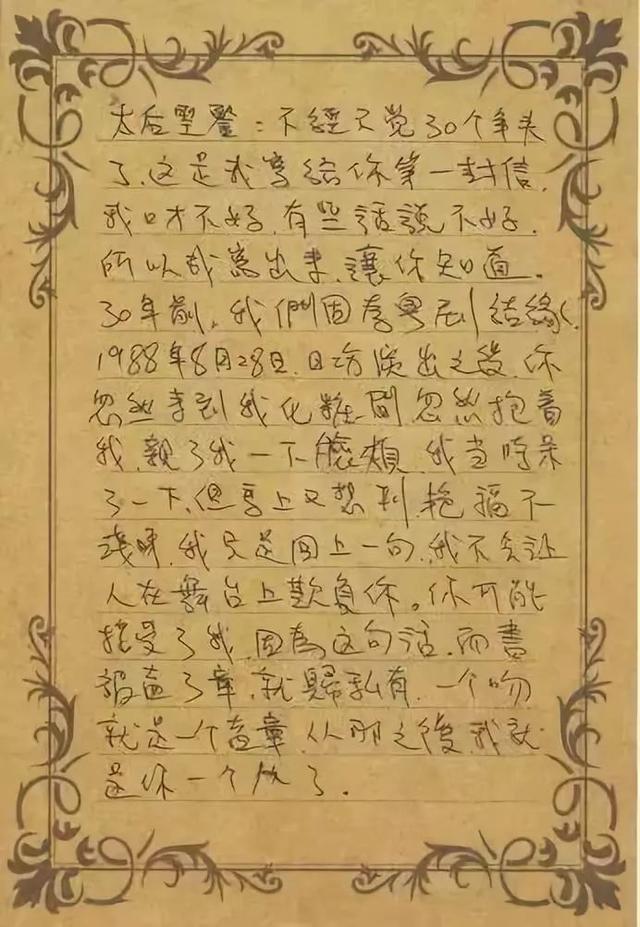 太后聖鑒：不經不觉30个年头
了.这是我寫給你第一封信.
我口才不好.有些話說不好.
所以我寫出來.讓你知道.
30年前.我們因為粵剧結緣.
1988年8月28日.日場演出之後.你
忽然走到我化粧間忽然抱着
我.親了我一下臉頰.我当時呆
了一下.但馬上又想到.艳福不
淺呀.我只是回上一句.我不会让
人在舞台上欺負你。你可能
接受了我.因為这句话.而書
被盖了章.就歸私有.一个吻
就是一个盖章.从那之後我就
是你一个了.